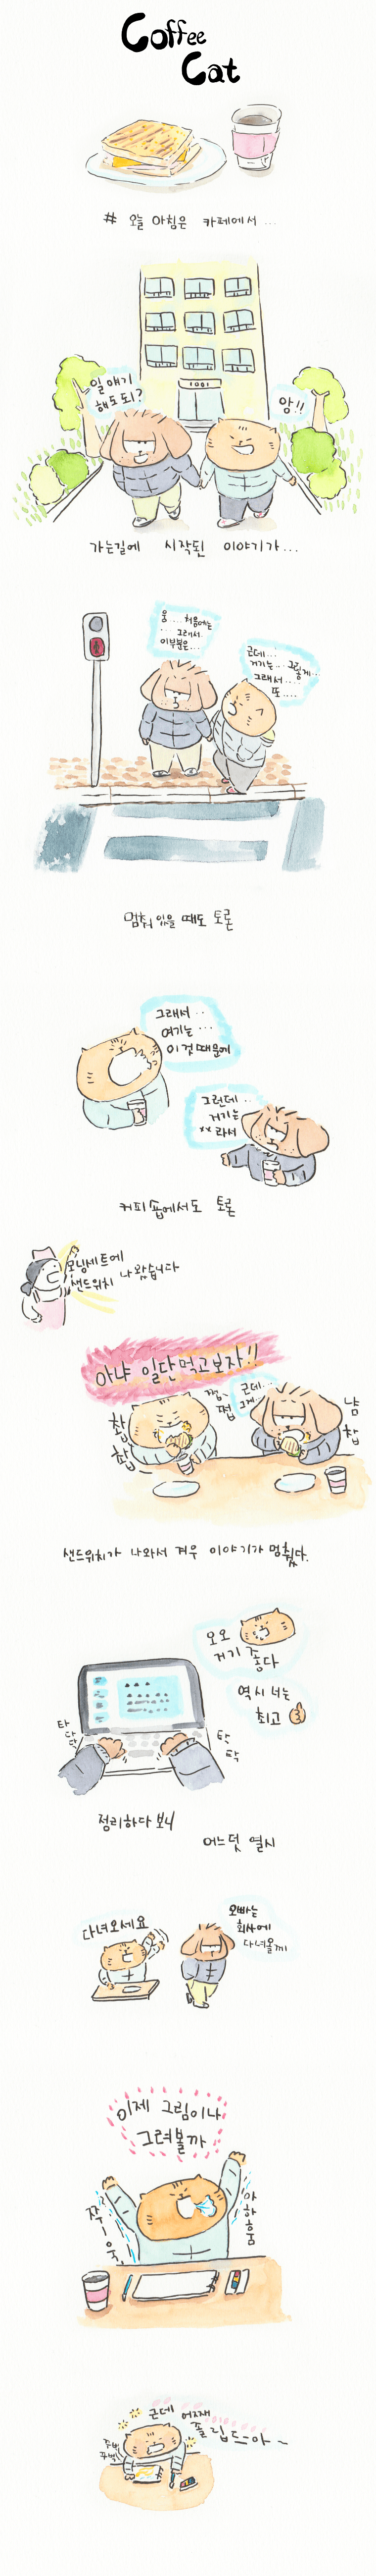 Coffee
Cat
# 오늘 아침은 카페에서...
일 얘기
해도 돼?
1001
앙!!
가는길에 시작된 이야기가...
웅... 처음에는
그래서
이부분은...
근데...
거기는... 그렇게...
그래서...
또....
멈춰 있을 때도 토론
그래서..
여기는...
이것 때문에
그런데..
거기는
xx 라서
커피숍에서도 토론
모닝세트에
샌드위치 나왔습니다
아냐 일단먹고보자!!
찹
찹
쩝
쩝
근데..
그게..
냠
찹
샌드위치가 나와서 겨우 이야기가 멈췄다.
오오
거기 좋다
역시 너는
최고
타
다
닥
탁
탁
정리하다 보니
어느덧 열시
다녀오세요
오빠는
회사에
다녀올께
이제 그림이나
그려볼까
쭈ㅡ욱
아하흠
근데 어째
졸립드아~
꾸벅
꾸벅